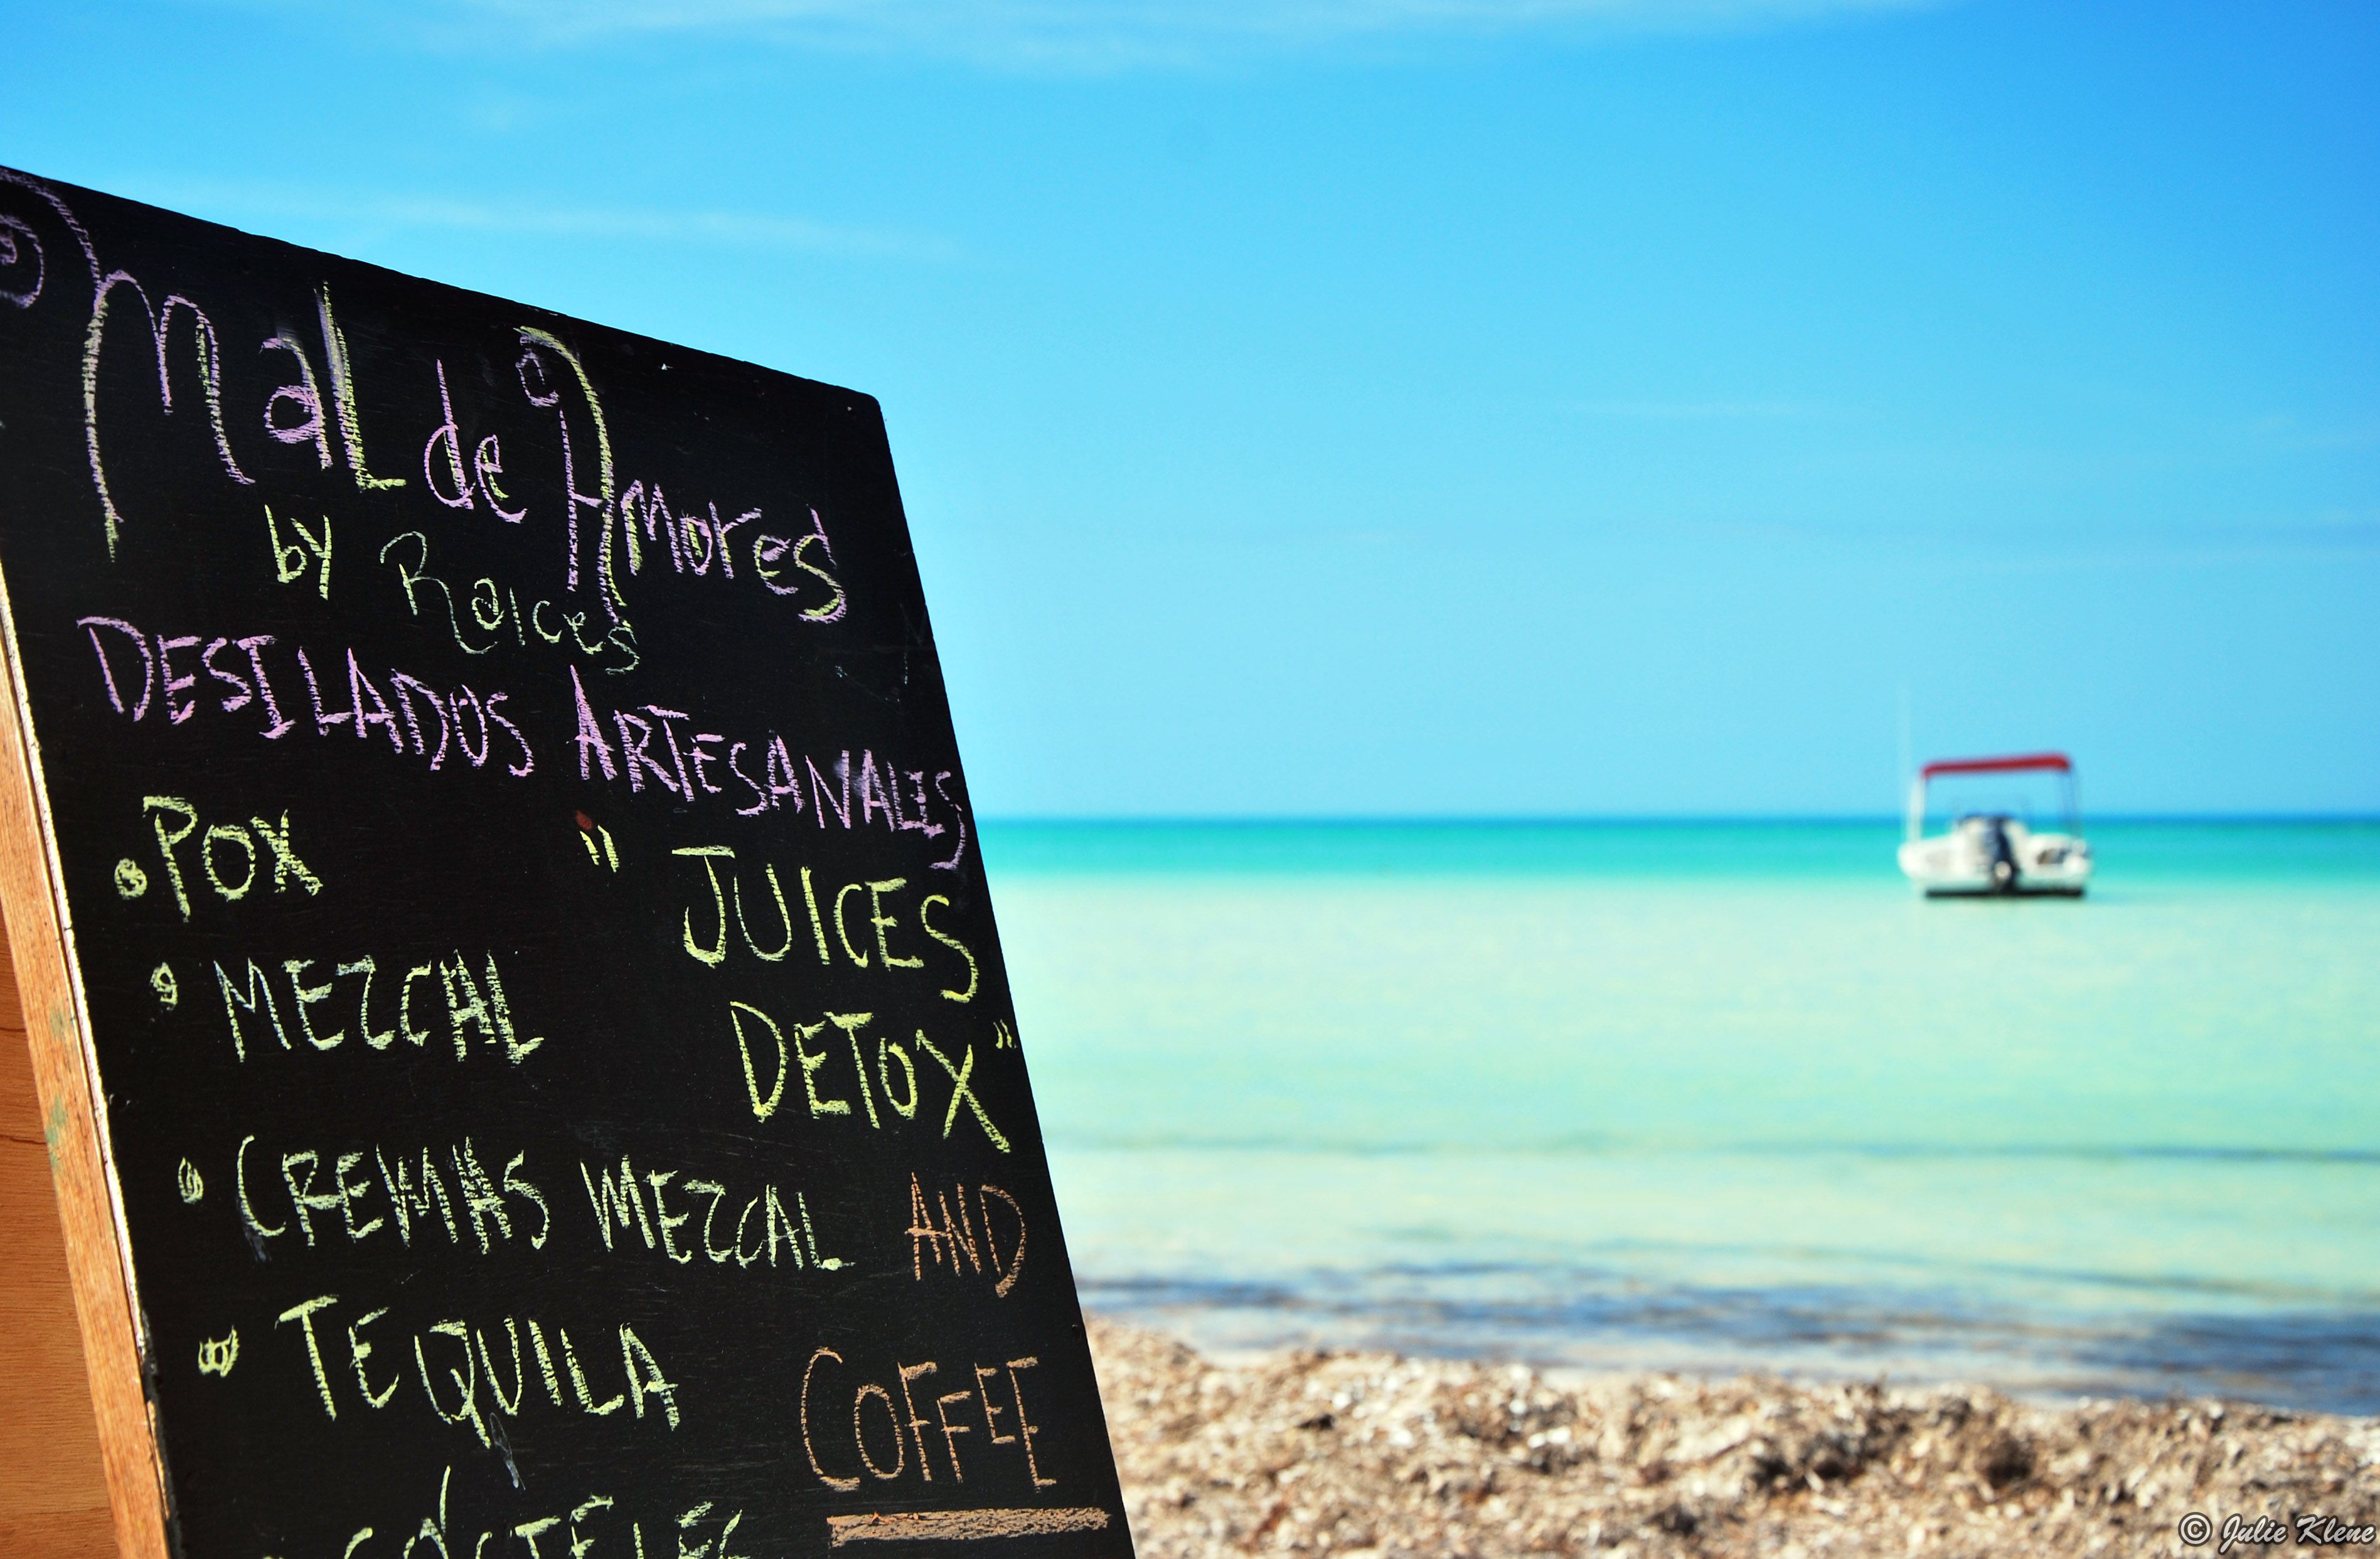 Mal de Amores
by Raices
DESILADOS ARTESANALES
POX
"JUICES
DETOX"
MEZCAL
CREMAS MEZCAL
AND
TEQUILA
COFFEE
COCTELES
© Julie Klene